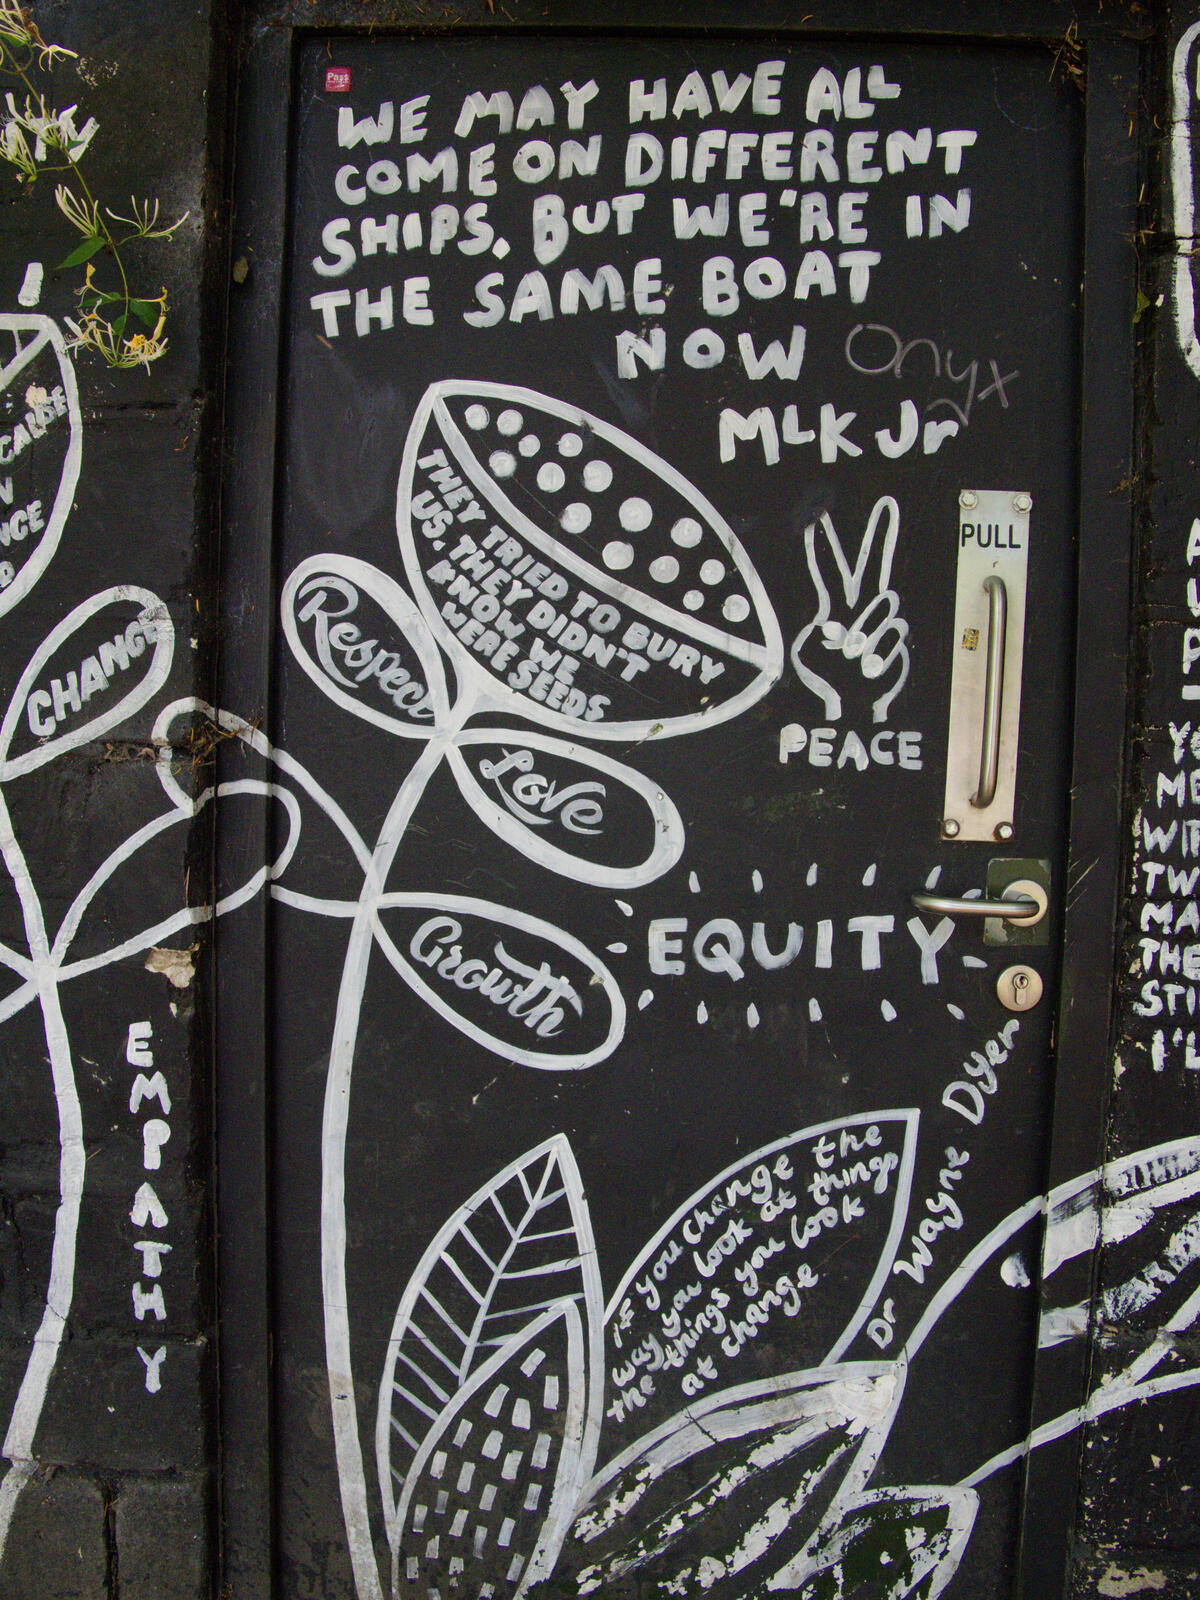 Pass
WE MAY HAVE ALL
COME ON DIFFERENT
SHIPS, BUT WE'RE IN
THE SAME BOAT
NOW
Onyx
MLK Jr
THEY TRIED TO BURY
US. THEY DIDN'T
KNOW WE
WERE SEEDS
PULL
PEACE
Respect
Love
Growth
EQUITY
CHANGE
EMPATHY
IF you change the
way you look at things
the things you look
at change
Dr Wayne Dyer
NCE
ME
TW
MA
THE
STI
I'L